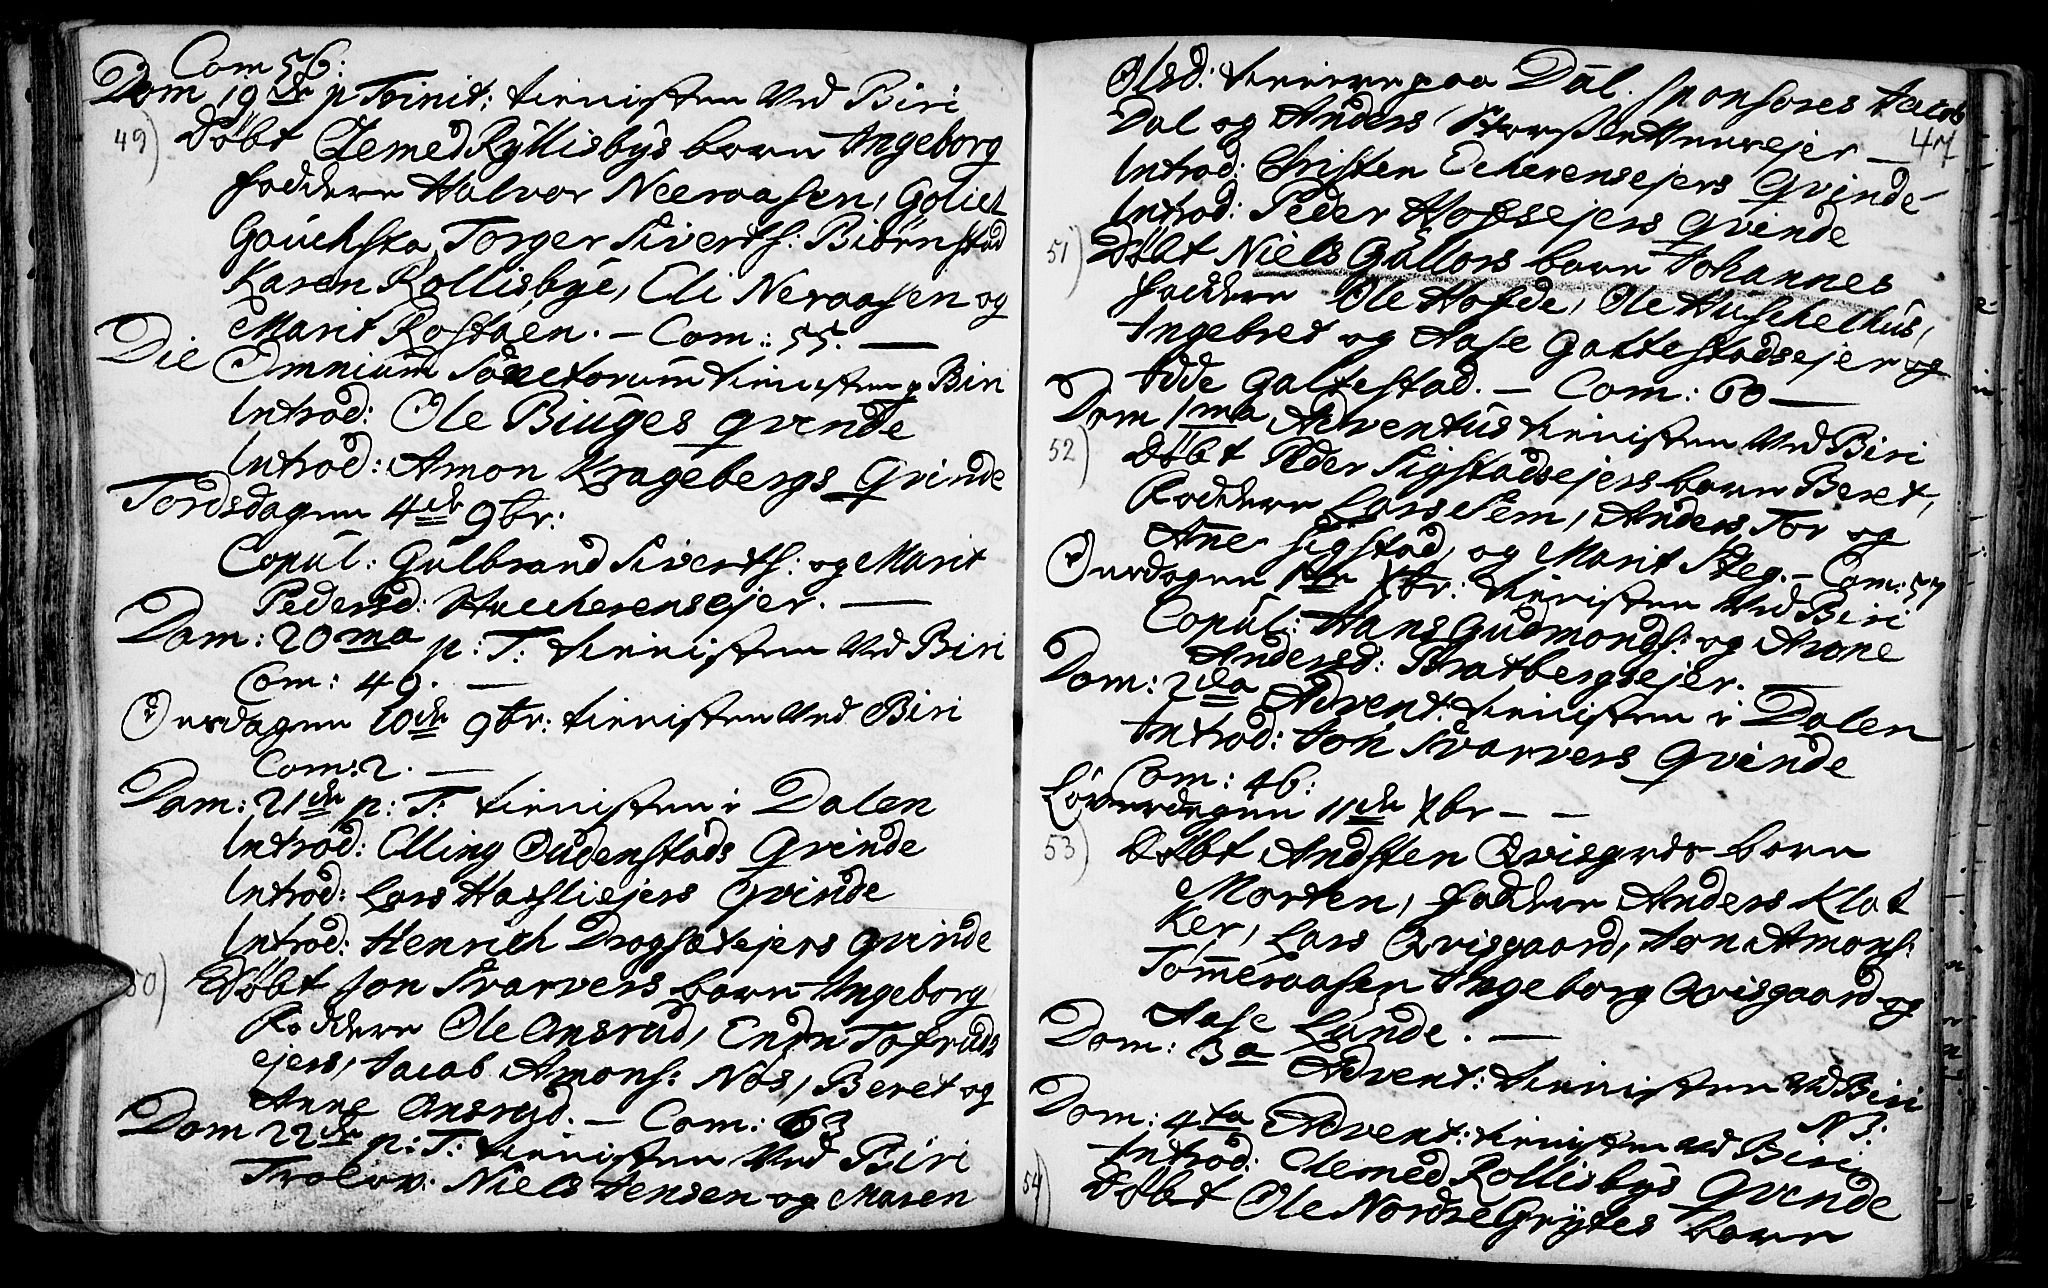 Com 56:
Dom 19de p Trinit: tienisten Ved Biri
49) Döbt Clemed Rÿllisbÿs barn Ingeborg
faddere Halvor Neeraasen, Goliet
Gaúchsta, Torger Siverts: Biörnstad
Karen Rollisbye, Eli Neraasen og
Marit Roståen. – Com:: 55. —
Die Omniúm Sanctorúm tienisten p Biri
Introd: Ole Biúges qvinde
Introd: Amon Kragebergs Qvinde
Tordsdagen 4de 9br:
Copúl: Gúlbrand Siverts: og Marit
Pedersd: Huccherensejer. —
Dom: 20ma p: T: tienisten Ved Biri
Com: 49. —
Onsdagen 10de 9br: tienisten Ved Biri
Com: 2. —
Dom: 21de p: T: tienisten i Dalen
Introd: Elling Oudenstads Qvinde
Introd: Lars Hasliejers Qvinde
Introd: Henrich Dragsætejers qvinde
50) Döbt Jon Svarvers barn Ingeborg
Faddere Ole Onsrud, Enden Tofruds
ejers, Jacob Amons: Nös, Beret og
Anne Onsrud. – Com: 63
Dom 22de p: T: tienisten Ved Biri
Trolov: Niels Jensen og Maren
Olsd: tienere paa Dal. Sponsores Jacob
47
Dal og Anders
Introd: Christen Echerensejers Qvinde
Introd: Peder Hofsejers qvinde
51) Döbt Niels Gullors barn Johannes
faddere Ole Hofde, Ole Húschelhús,
Ingebret og Aase Galtestadsejer og
Adde Galtestad. – Com: 60 —
Dom 1ma Adventús tienisten Ved Biri
52) Döbt Peder Sigstadsejers barn Beret,
Faddere Lars Sem, Anders Tor og
Anne Sigstad, og Marit Steg. – Com: 57
Onsdagen 1de Xbr: tienisten Ved Biri
Copúl: Hans Gudmonds: og Arone
Andersd: Bratbergsejer.
Dom: 2da Advent: tienisten i Dalen
Introd: Jon Svarvers Qvinde
Com: 46:
Löverdagen 11de Xbr – –
53) Döbt Andsten Qvisgrds barn
Morten, faddere Anders Klat
ker, Lars Qvisgaard, Jon Amons:
Tömeraasen Ingeborg Qvisgaard og
Aase Lunde. —
Dom: 3a Advent: tienisten Ved Biri
N3:
Dom: 4ta Advent: tienisten Ved Biri
Introd: Clemed Rollisbÿs Qvinde
54) Döbt Ole Nordre Grÿtes barn